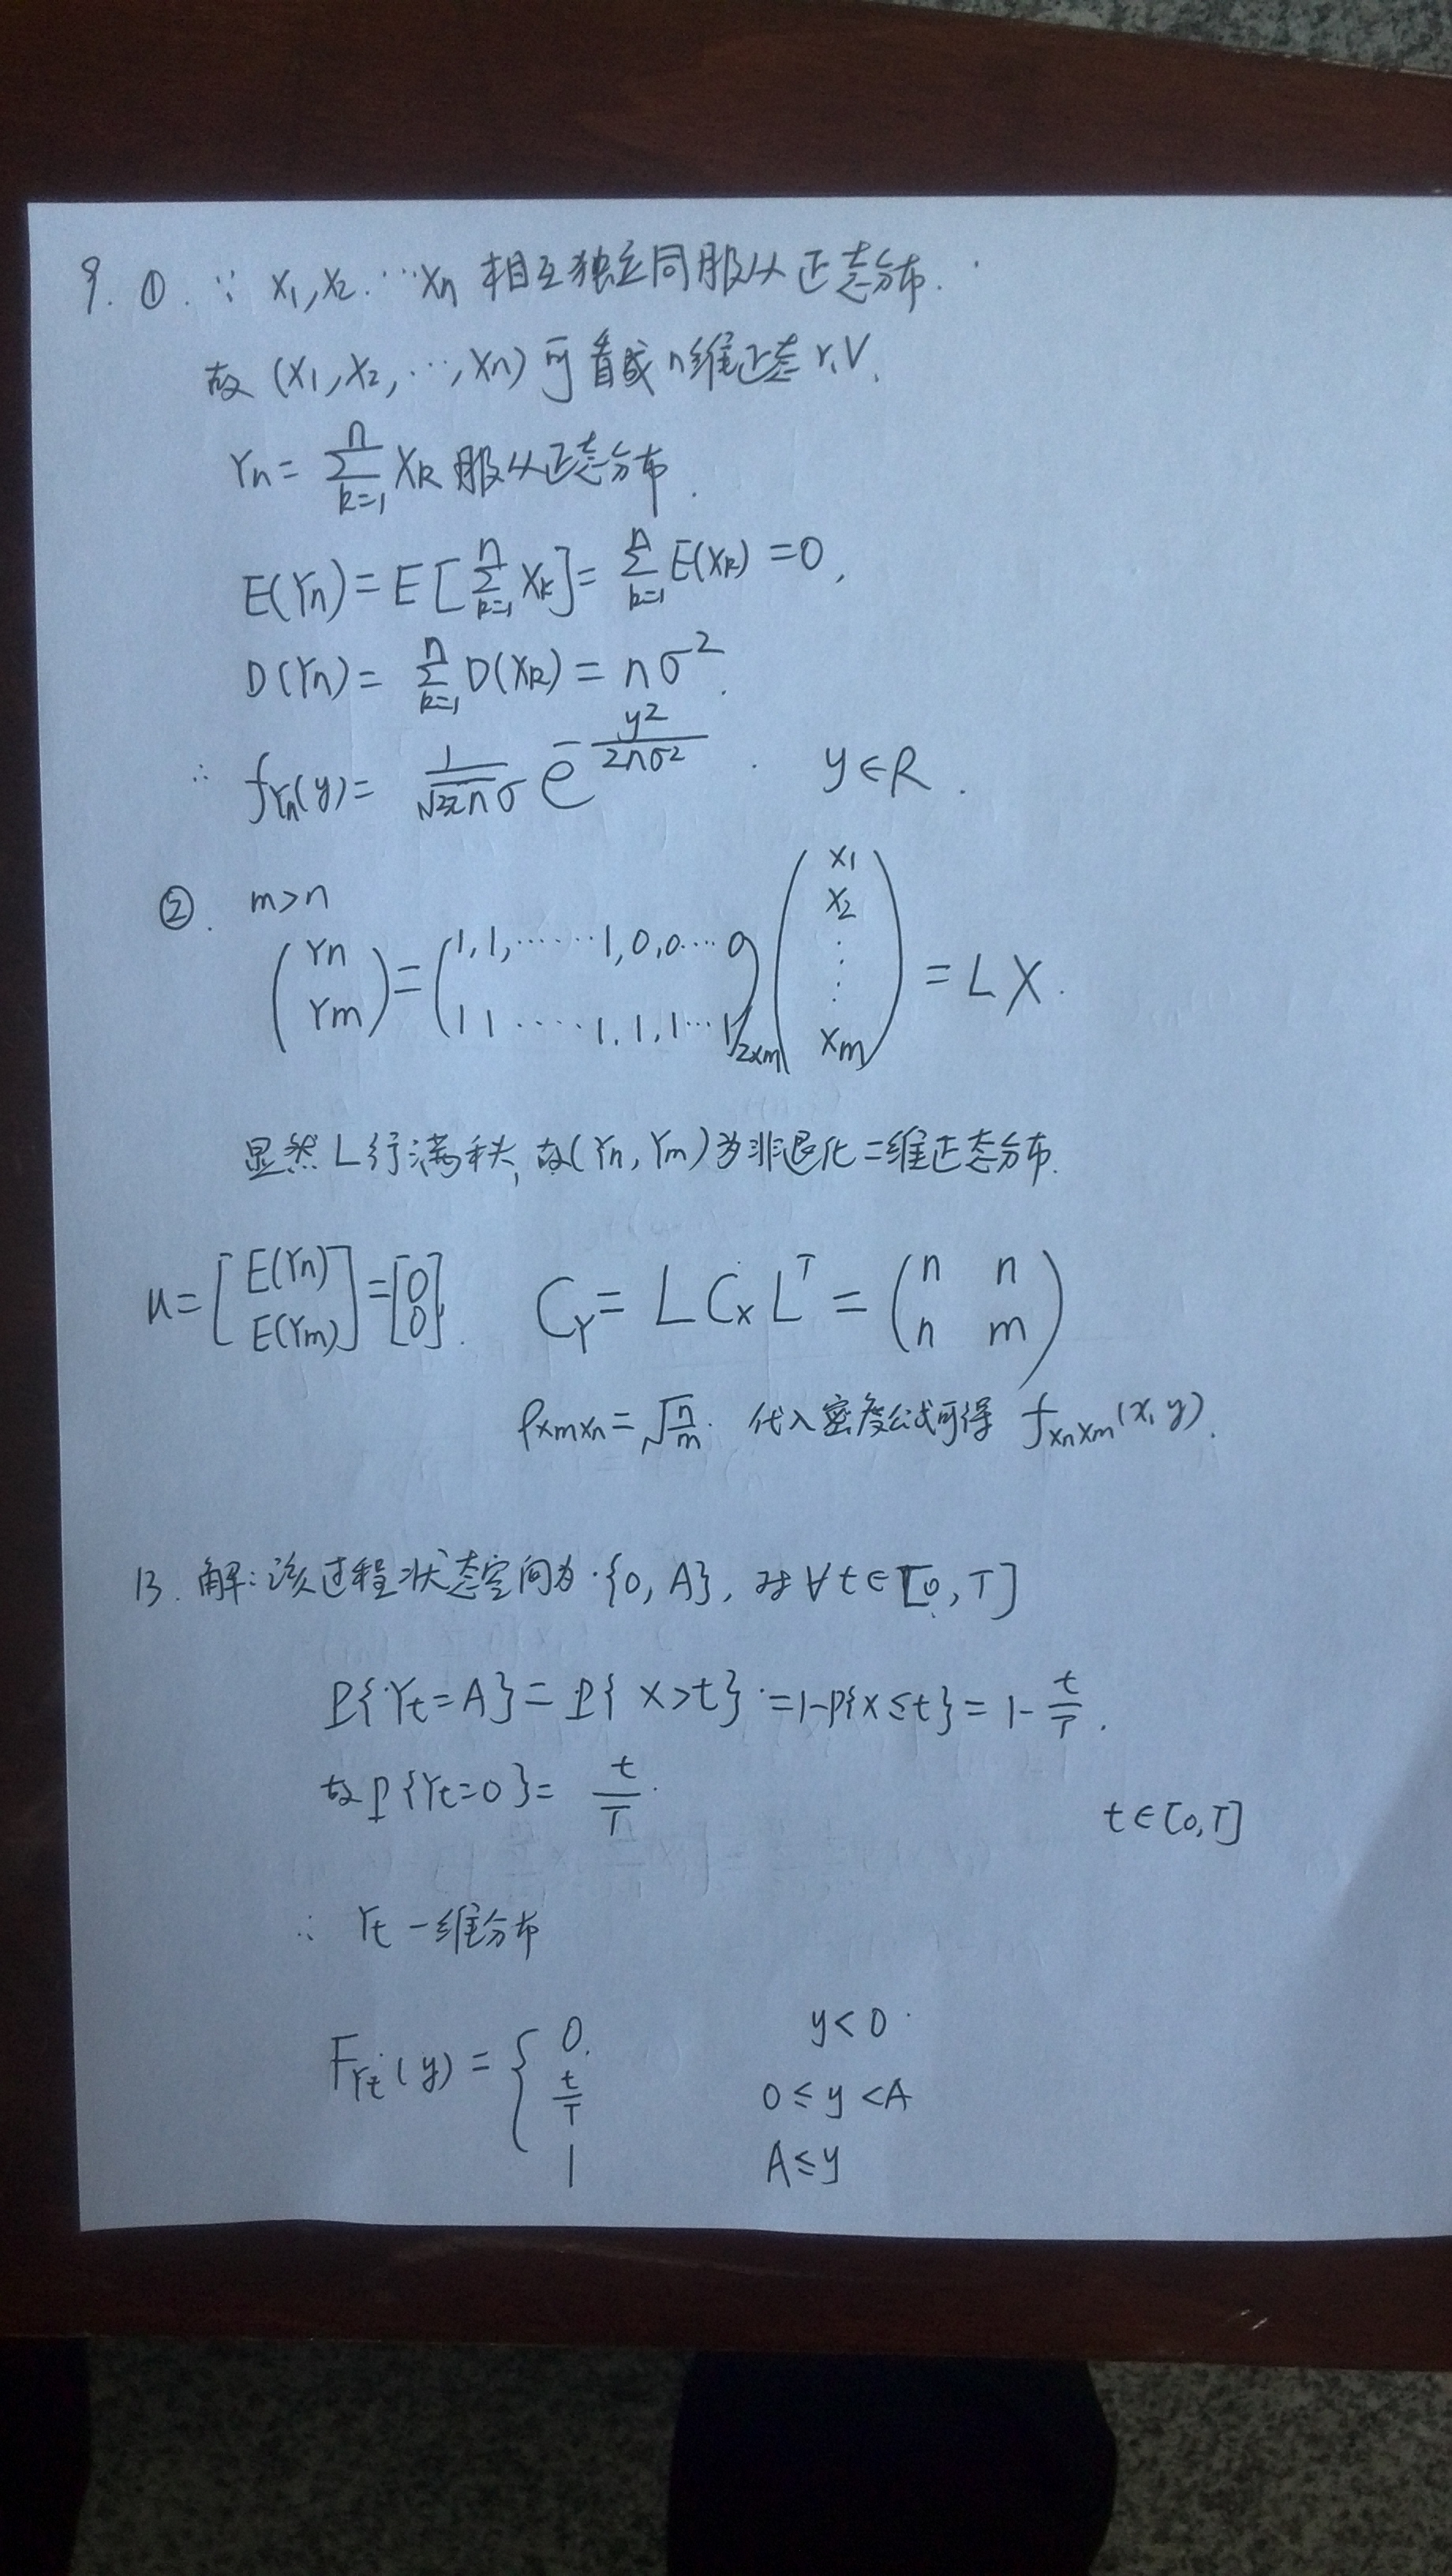 9. ①. ∵ X₁,X₂.…Xn 相互独立同服从正态分布.
故 (X₁,X₂,…,Xn) 可看成 n维正态 r.V.
Yn = ∑_{k=1}^{n} Xk 服从正态分布.
E(Yn) = E[∑_{k=1}^{n} Xk] = ∑_{k=1}^{n} E(Xk) = 0,
D(Yn) = ∑_{k=1}^{n} D(Xk) = nσ².
∴ f_{Yn}(y) = \frac{1}{\sqrt{2πn}σ} e^{-\frac{y²}{2nσ²}}. y∈R.
②. m>n
(Yn Ym) = (1,1,……1,0,0…0 1 1 ….1,1,1…1)_{2×m} (X₁ X₂ ⋮ Xm) = LX.
显然 L行满秩, 故(Yn, Ym)为非退化二维正态分布.
u = [E(Yn) E(Ym)] = [0 0]. C_Y = L C_X L^T = (n n n m)
ρ_{XmXn} = \sqrt{\frac{n}{m}}. 代入密度公式可得 f_{XnXm}(x,y).
13. 解: 该过程状态空间为·{0, A}, 对∀t∈[0,T]
P{Yt=A} = P{X>t} = 1-P{X≤t} = 1-\frac{t}{T}.
故P{Yt=0} = \frac{t}{T}.
t∈[0,T]
∴ Yt 一维分布
F_{Yt}(y) = { 0. y<0
\frac{t}{T} 0≤y<A
1 A≤y